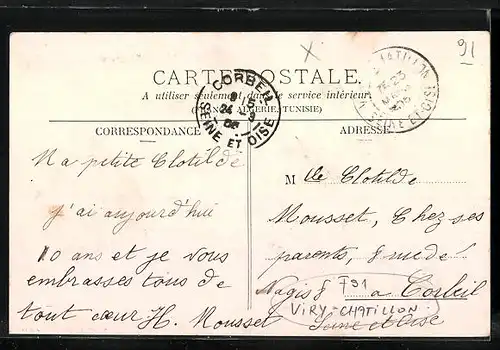 91
CARTE POSTALE.
A utiliser seulement dans le service intérieur
(FRANCE, ALGÉRIE, TUNISIE)
CORBEIL
9
24 -5
06
SEINE ET OISE
CHATILLON
23
SEINE ET OISE
CORRESPONDANCE
ADRESSE
Ma petite Clotilde
j'ai aujourd'hui
10 ans et je vous
embrasses tous de
tout cœur H. Mousset
M lle Clotilde
Mousset, Chez ses
parents, 8 rue de
Nagis 8 a Corbeil
Seine et Oise
791
VIRY-CHATILLON